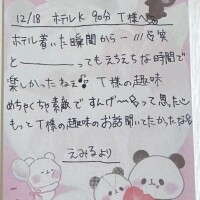 12/18 ホテルK 90分 T様へ
ホテル着いた瞬間から
と――――ってもえちえちな時間で
楽しかったねぇ♪ T様の趣味
めちゃくちゃ素敵ですんげ〜なって思ったし
もっとT様の趣味のお話聞いてたかったな
えみるより